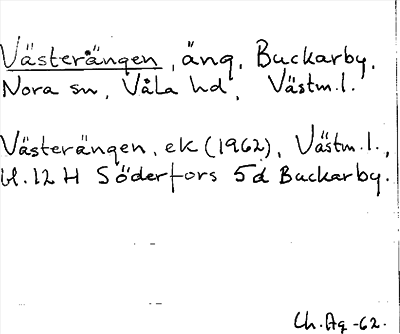 Västerängen, äng, Buckarby,
Nora sn, Våla hd, Västm.l.
Västerängen, ek (1962), Västm.l.,
bl. 12 H Söderfors 5d Buckarby.
Ch. Ag -62.